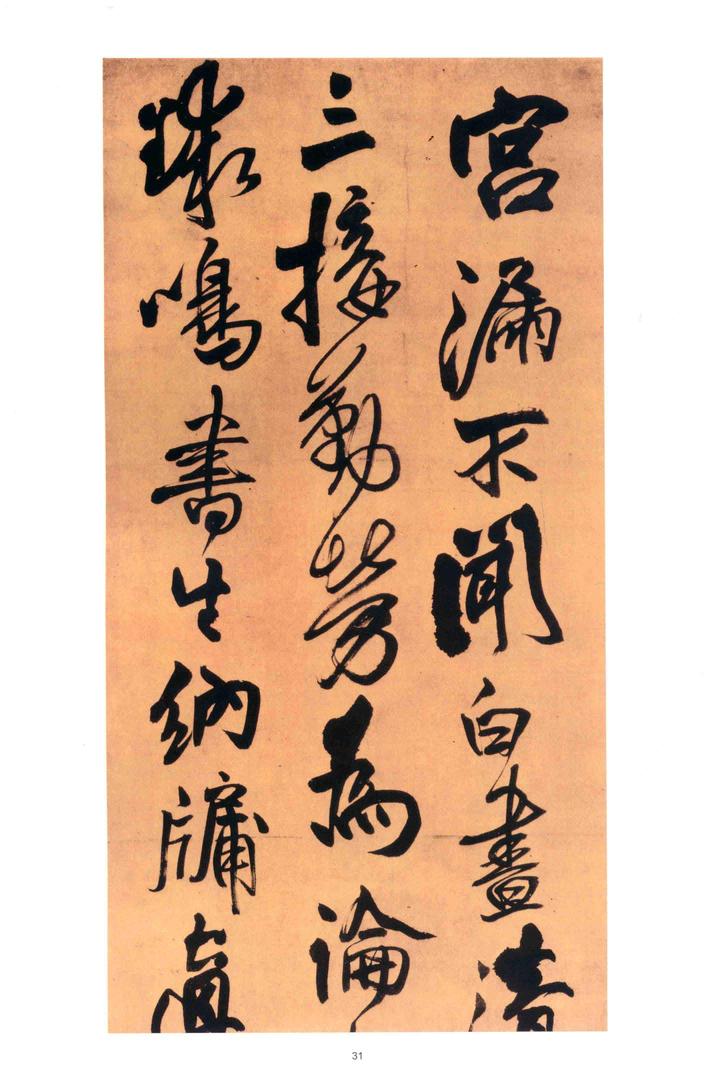 宮漏不聞白晝清
三接勤勞為論
球鳴書生納牖真
31